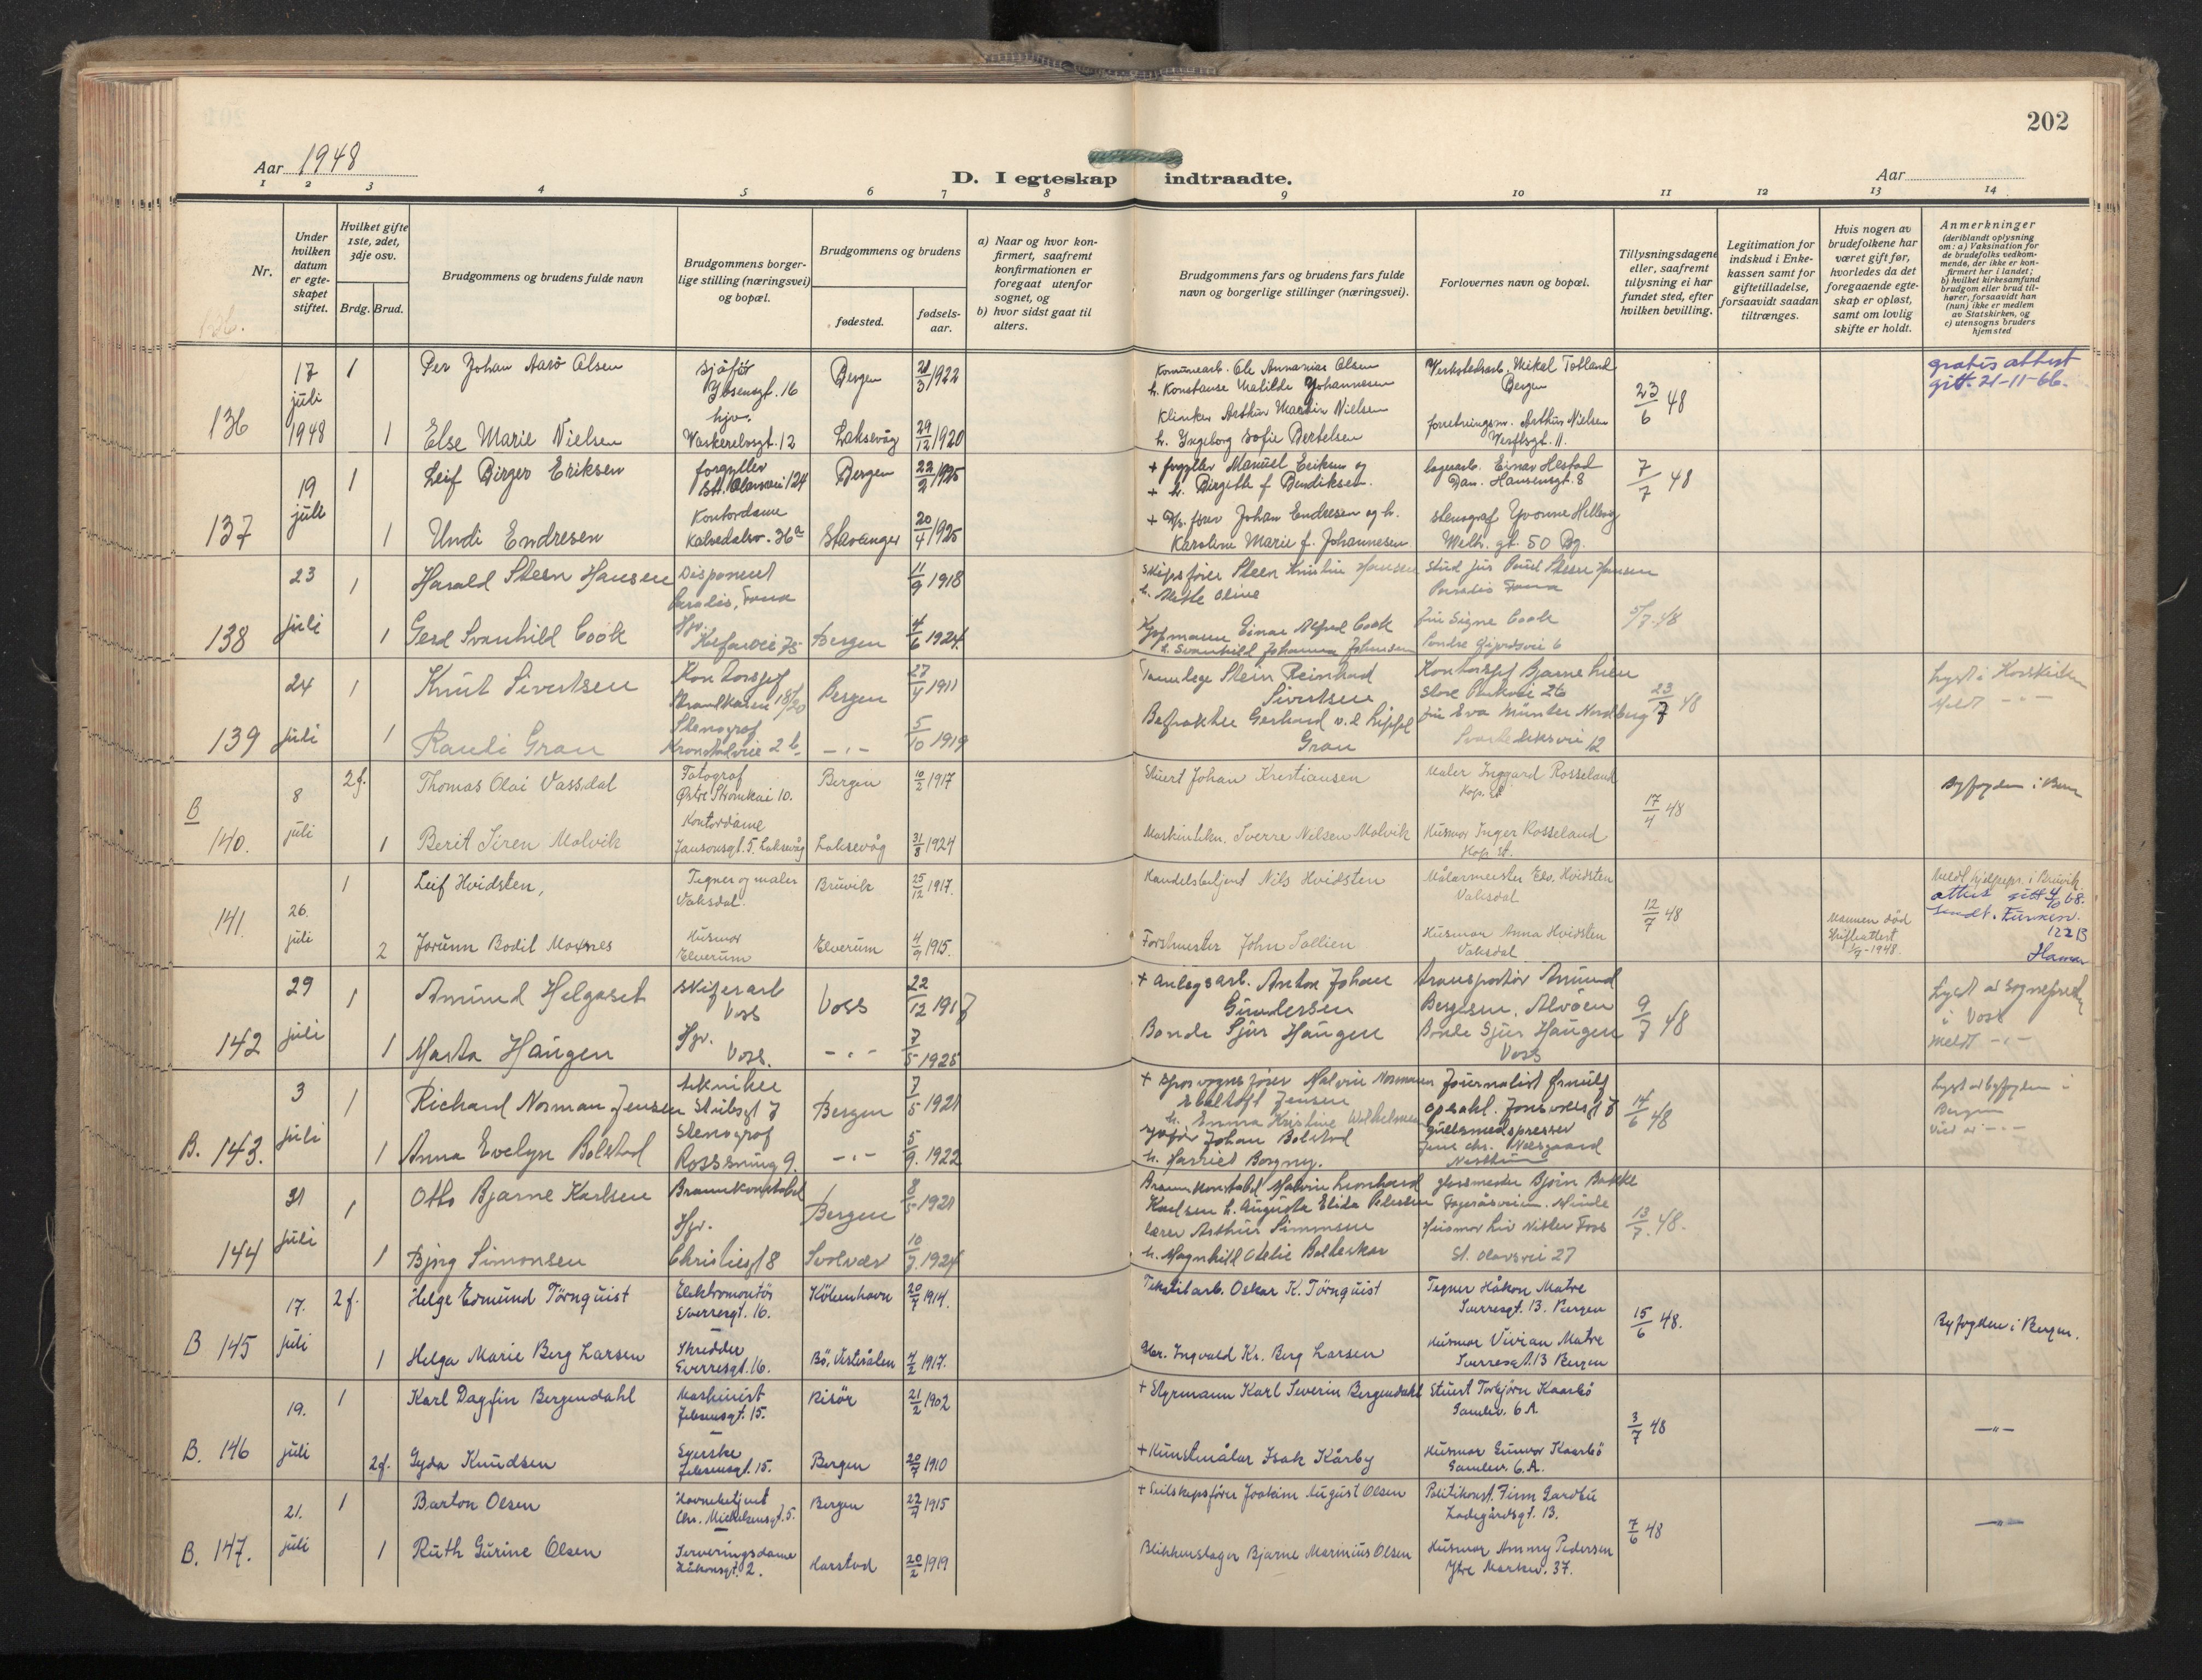 202
Aar 1948
Aar
D. I egteskap indtraadte.
1 2 3 4 5 6 7 8 9 10 11 12 13 14
Nr.
Under hvilken datum er egteskapet stiftet.
Hvilket gifte 1ste, 2det, 3dje osv.
Brdg. Brud.
Brudgommens og brudens fulde navn
Brudgommens borgerlige stilling (næringsvei) og bopæl.
Brudgommens og brudens
fødested.
fødselsaar.
a) Naar og hvor konfirmert, saafremt konfirmationen er foregaat utenfor sognet, og
b) hvor sidst gaat til alters.
Brudgommens fars og brudens fars fulde navn og borgerlige stillinger (næringsvei).
Forlovernes navn og bopæl.
Tillysningsdagene eller, saafremt tillysning ei har fundet sted, efter hvilken bevilling.
Legitimation for indskud i Enkekassen samt for giftetilladelse, forsaavidt saadan tiltrænges.
Hvis nogen av brudefolkene har været gift før, hvorledes da det foregaaende egteskap er opløst, samt om lovlig skifte er holdt.
Anmerkninger
(deriblandt oplysning om: a) Vaksination for de brudefolks vedkommende, der ikke er konfirmert her i landet;
b) hvilket kirkesamfund brudgom eller brud tilhører, forsaavidt han (hun) ikke er medlem av Statskirken, og
c) utensogns bruders hjemsted
136
17 juli 1948
1 Per Johan Aarö Olsen
sjåför
Ibsensgt. 16
Bergen
21/3 1922
Komunearb. Ole Annanias Olsen
h. Konstanse Matilde Johannesen
Verkstedarb. Mikal Totland
Bergen
23/6 48
gratis attest
gitt. 21-11-66.
1 Else Marie Nielsen
hjv.
Waskerelvsgt. 12
Laksevåg
29/12 1920
Klinker Arthur Martin Nielsen
h. Ingeborg Sofie Bertelsen
forretningsm. Arthur Nielsen
Verftsgt. 11.
137
19 juli
1 Leif Birger Eriksen
forgyller
St. Olavsvei 124
Bergen
22/2 1925
+ forgyller Manuel Eriksen og
+ h. Birgith f Bendiksen.
lagerarb. Einar Hestad
Dan. Hansensgt. 8
7/7 48
1 Undi Endresen
Kontordame
Kalvedalsv. 36a
Stavanger
20/4 1925
Johan Endresen og h.
Karoline Marie f. Johannesen
stenograf Yvonne Hellevig
Welh. gt. 50 Bg.
138
23 juli
1 Harald Steen Hansen
Disponent
Paradis, Fana
11/9 1918
Skipsfører Steen Kristin Hansen
h. Mette Oline
stud jur Poul Steen Hansen
Paradis Fana
5/7 48
1 Gerd Svanhild Cook
Hjv.
Bergen
4/6 1924
Kjøpmann Einar Alfred Cook
h. Svanhild Johanna Johnsen
fru Signe Cook
139
24 juli
1 Knut Sivertsen
Kontorsjef
Strandkaien 18/20
Bergen
27/4 1911
Tannlege Stein Reinhad
Sivertsen
Kontorsjef Bjarne Lien
Store Parkvei 26
23/7 48
Lyst i Korskirken
Meldt -"-
1 Randi Gran
Stenograf
Kronstadveie 2 b
-"-
5/10 1919
Befrakter Gerhard v.d. Lippe
Gran
fru Eva Münster Nordberg
12
B 140.
8 juli
2 f. Thomas Olai Vassdal
Fotograf
Østre Strømkai 10.
Bergen
10/2 1917
Stuert Johan Kristiansen
Maler Inggard Rosseland
Hop. st.
17/4 48
Byfogden i Bern
1 Berit Siren Malvik
Kontordame
Jansonsgt. 5. Laksevåg
Laksevåg
31/8 1924
Maskintekn. Sverre Nilsen Malvik
Husmor Inger Rosseland
Hop st.
141.
26. juli
1 Leif Hvidsten,
Tegner og maler
Vaksdal.
Bruvik
25/12 1917.
Handelsbetjent Nils Hvidsten
Målarmeister Elv. Hvidsten
Vaksdal
12/7 48
Meldt hjelpepr. i Bruvik.
attest gitt 4/10 68.
sendt.
122B
Hamar
2 Jorunn Bodil Moxnes
Husmor
Elverum
Elverum
4/9 1915.
Forstmester John Sollien
Husmor Anna Hvidsten
Vaksdal
Mannen död
Skifteattest
1948.
142
29 juli
1 Amund Helgaset
skiferarb
Voss
Voss
22/12 1917
+ anlegsarb. Anton Johan
Gundersen
transportør Amund
Bergesen, Alvøen
9/7 48
Lyst av sognepresten
i Voss
Meldt -"-
1 Marta Haugen
Hjv.
Voss.
-"-
7/5 1925
Bonde Sjur Haugen
Bonde Sjur Haugen
Voss
B. 143.
3 juli
1 Richard Norman Jensen
tekniker
Bergen
7/5 1921
+ Sporvognsfører Malvin Norman
Jensen
h. Emma Kristine Wilhelmsen
Journalist Ørnulf
Opsahl.
14/6 48
Lyst av byfogden i
Bergen
Viet av -"-
1 Anna Evelyn Bolstad
Stenograf
9.
-"-
5/9. 1922
sjåfør Johan Bolstad
h. Harriet Borgny.
gullsmedspresser
Jens Chr. Neesgaard
Nesttun
144
31 juli
1 Otto Bjarne Karlsen
Brannkonstabel
Bergen
8/5 1921
Brannkonstabel Malvin Leonhard
Karlsen h. Augusta Elida Petersen
glassmester Bjørn Bakke
Fageråsveien. Minde
13/7. 48.
1 Bjørg Simonsen
Hjv.
Christiesgt 8
Svolvær
10/7. 1924
lærer Arthur Simonsen
h. Magnhild Otelie
Husmor Liv Foss
St. Olavsvei 27
B 145
17. juli
2 f. Helge Edmund Törnquist
Elektromontør
Sverresgt. 16.
Köbenhavn
20/7 1914.
Tekstilarb. Oskar K. Törnquist
Tegner Håkon Matre
Sverresgt. 13. Bergen
15/6 48.
Byfogden i Bergen.
1 Helga Marie Berg Larsen
Skredder
Sverresgt. 16.
Bö, Vesterålen
4/2 1917.
Ingvald Kr. Berg Larsen
Husmor Vivian Matre
Sverresgt. 13 Bergen
B. 146
19. juli
1 Karl Dagfin Bergendahl
Maskinist
Jebsensgt. 15.
Risör
21/2 1902
+ Styrmann Karl Severin Bergendahl
Stuert Torbjörn Kaarbö
Gamlev. 6 A.
3/7 48
-"-
2 f. Gyda Knudsen
Syerske
Jebsensgt. 15.
Bergen
20/7 1910
+ Kunstmålar Isak Kårby
Husmor Gunvor Kaarbö
Gamlev. 6. A.
B. 147.
21. juli
1 Barton Olsen
Havnebetjent
Chr. Michelsensgt. 5.
Bergen
22/4 1915
+ Seilskipsfører Joakim August Olsen
Politikonst. Finn Gardbu
Ladegårdsgt. 13.
7/6 48
-"-
1 Ruth Gurine Olsen
Serveringsdame
Håkonsgt. 2.
Harstad
20/2 1919
Blikkenslager Bjarne Marinius Olsen
Husmor Ammy Pedersen
Ytre Markev. 37.